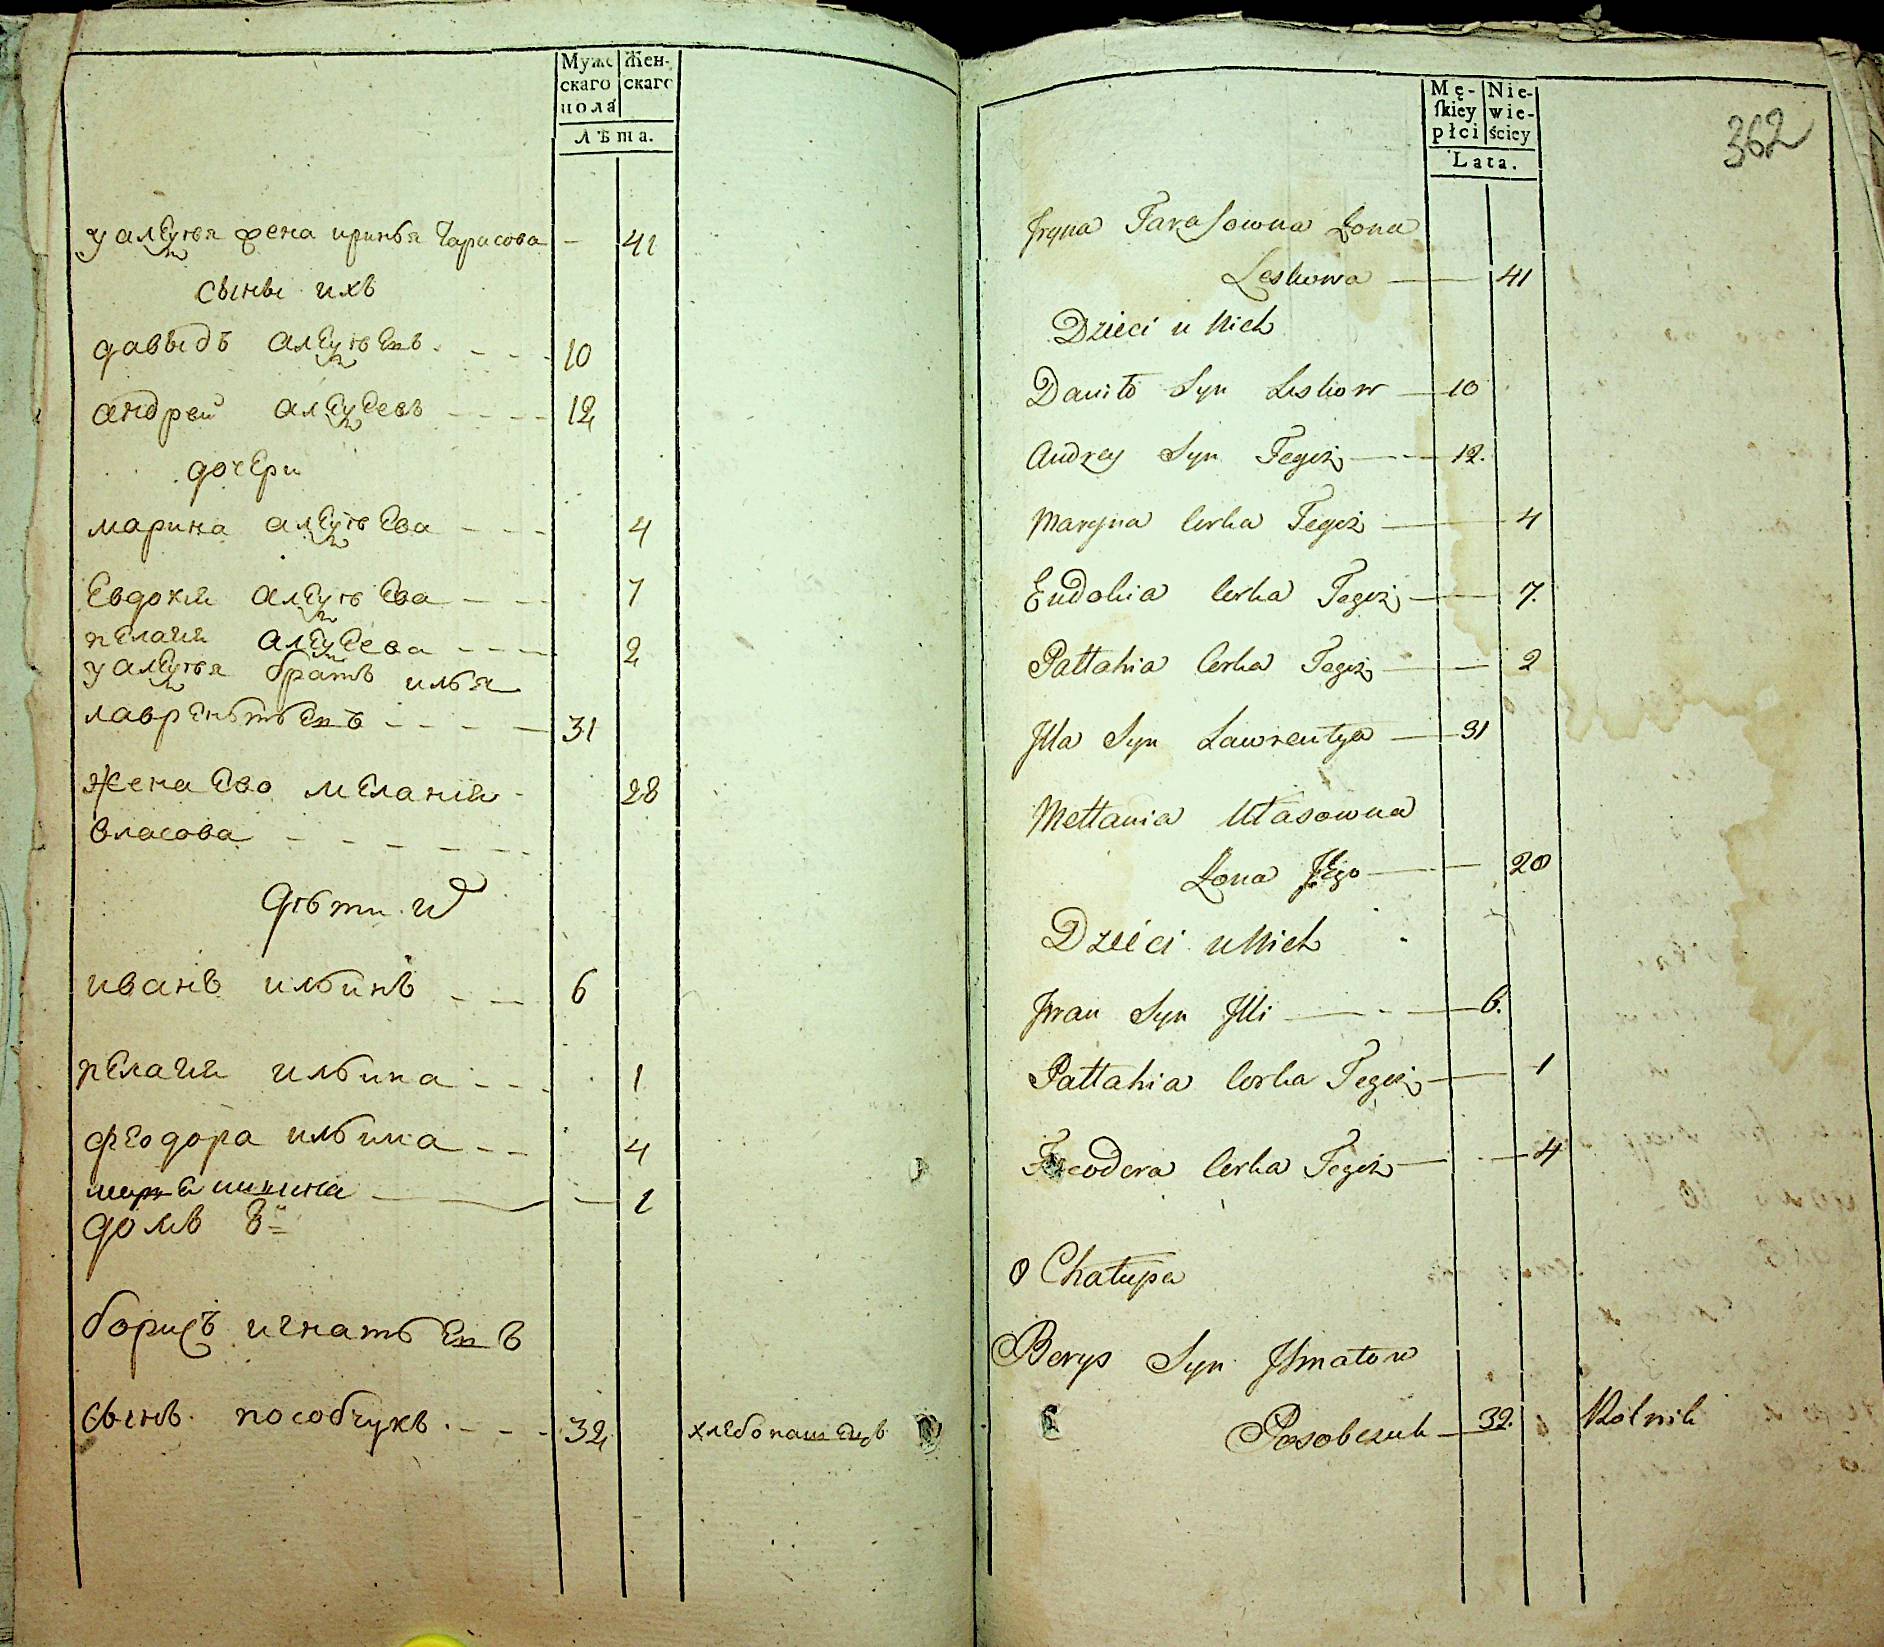 Муже
скаго
пола
Жен-
скаго
Лѣта.
у алеуѣя жена иринья Тарасова — 41
сыны ихъ
давыдъ алеуѣевъ 10
андрей алеуеевъ 12
дочери
марина алеуѣева 4
Евдокия алеуѣева 7
пелагия алеуеева 2
у алеуѣя братъ илья
лаврентьевъ 31
жена ево мелания 28
власова
дѣти и
иванъ ильинъ 6
пелагия ильина 1
феодора ильина 4
1
домъ 8й
борисъ игнатьевъ
сынъ пособчукъ 32 хлебопашецъ
362
Mę-
skiey
płci
Nie-
wie-
ściey
Lata.
Jryna Tarasowna Zona
Leskowa 41
Dzieci u Nich
Daniło Syn Leskow 10
Andrey Syn Tegoż 12.
Maryna Corka Tegoż 4
Eudokia Corka Tegoż 7.
Pałtahia Corka Tegoż 2
Jlla Syn Lawrentya 31
Mełłania Ułasowna
Zona Jego 28
Dzieci u Nich
Jwan Syn Jlli 6.
Pałtahia Corka Tegoż 1
Feodora Corka Tegoż 4
8 Chałupa
Borys Syn Jhnatow
Posobczuk 32. Rolnik